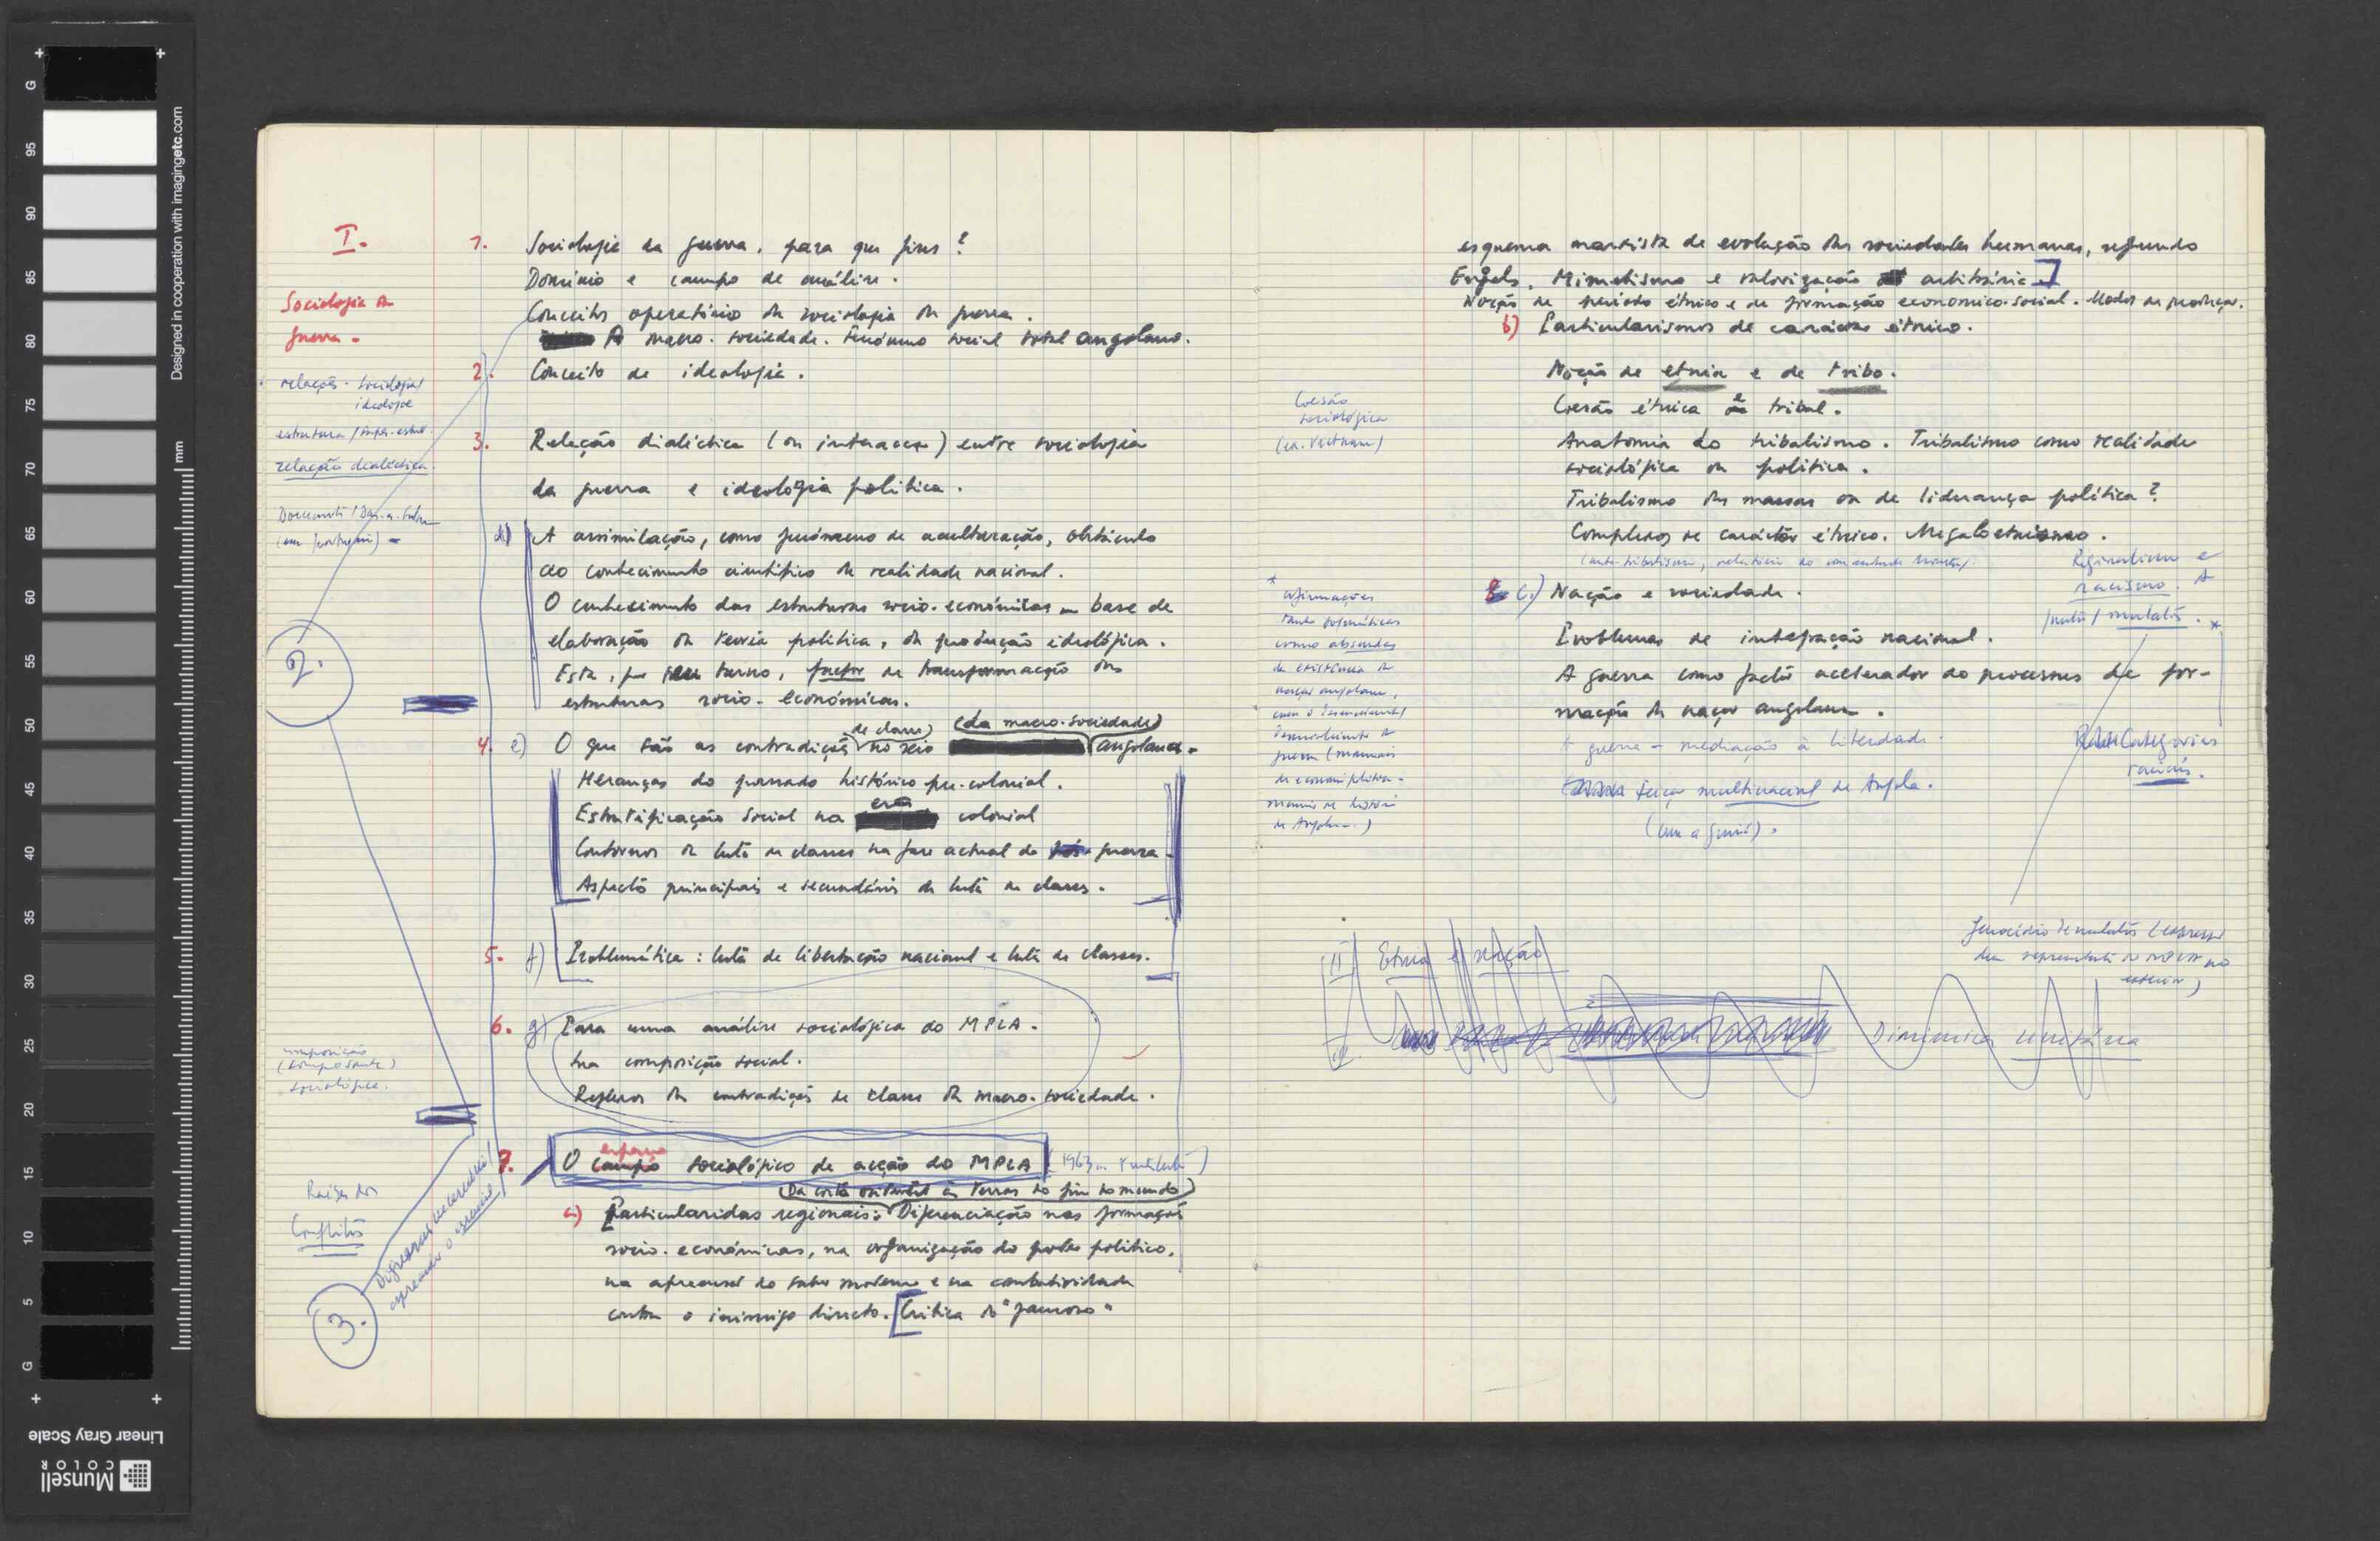 I.
Sociologia da
guerra.
relações - sociologia/
ideologia
estrutura / super-estrut.
relação dialéctica.
(em português) -
2.
1. Sociologia da guerra, para que fins?
Domínio e campo de análise.
Conceitos operatórios da sociologia da guerra.
A macro-sociedade. Fenómeno social total angolano.
2. Conceito de ideologia.
3. Relação dialéctica (ou interacção) entre sociologia
da guerra e ideologia política.
d) A assimilação, como fenómeno de aculturação, obstáculo
ao conhecimento científico da realidade nacional.
O conhecimento das estruturas socio-económicas - base de
elaboração da teoria política, da produção ideológica.
Esta, por seu turno, factor de transformação das
estruturas socio-económicas.
4. e) O que são as contradições de classe no seio (da macro-sociedade) angolana.
Heranças do passado histórico pre-colonial.
Estratificação social na era colonial
Contornos da luta de classes na fase actual da guerra.
Aspectos principais e secundários da luta de classes.
5. f) Problemática: luta de libertação nacional e luta de classes.
6. g) Para uma análise sociológica do MPLA.
Sua composição social.
Reflexos das contradições de classe da macro-sociedade.
composição
(componente)
sociológica.
7. O campo sociológico de acção do MPLA (1963
espaço
(Da costa ocidental às terras do fim do mundo)
a) Particularidas regionais: Diferenciação nas formações
socio-económicas, na organização do poder político,
na apreensão do saber moderno e na combatividade
contra o inimigo directo. [Crítica do "famoso"
Raizes dos
Conflitos
3.
esquema marxista de evolução das sociedades humanas, segundo
Engels. Mimetismo e valorização arbitrária]
Noção de período étnico e de formação economico-social. Modos de produção.
b) Particularismos de carácter étnico.
Noção de etnia e de tribo.
Coesão étnica e tribal.
Coesão
sociológica
(ex. Vietnam)
Anatomia do tribalismo. Tribalismo como realidade
sociológica ou política.
Tribalismo das massas ou de liderança política?
Complexos de carácter étnico. Megaloetnismo.
Regionalismo e
racismo. A
/ mulatos. *
c) Nação e sociedade.
Problemas de integração nacional.
A guerra como factor acelerador do processus de for-
mação da nação angolana.
A guerra - mediação à liberdade.
feição multiracial de Angola.
Categorias
raciais.
* afirmações
tanto dogmáticas
como absurdas
da existência da
nação angolana,
guerra (manuais
de economia política -
manuais de história
de Angola.)
Genocídio de mulatos (expressão
dum representante do MPLA no
exterior)
II Etnia e nação
Dinâmica unitária
G 95 90 85 80 75 70 65 60 55 50 45 40 35 30 25 20 15 10 5 G
mm
Designed in cooperation with imagingetc.com
Linear Gray Scale
Munsell
COLOR